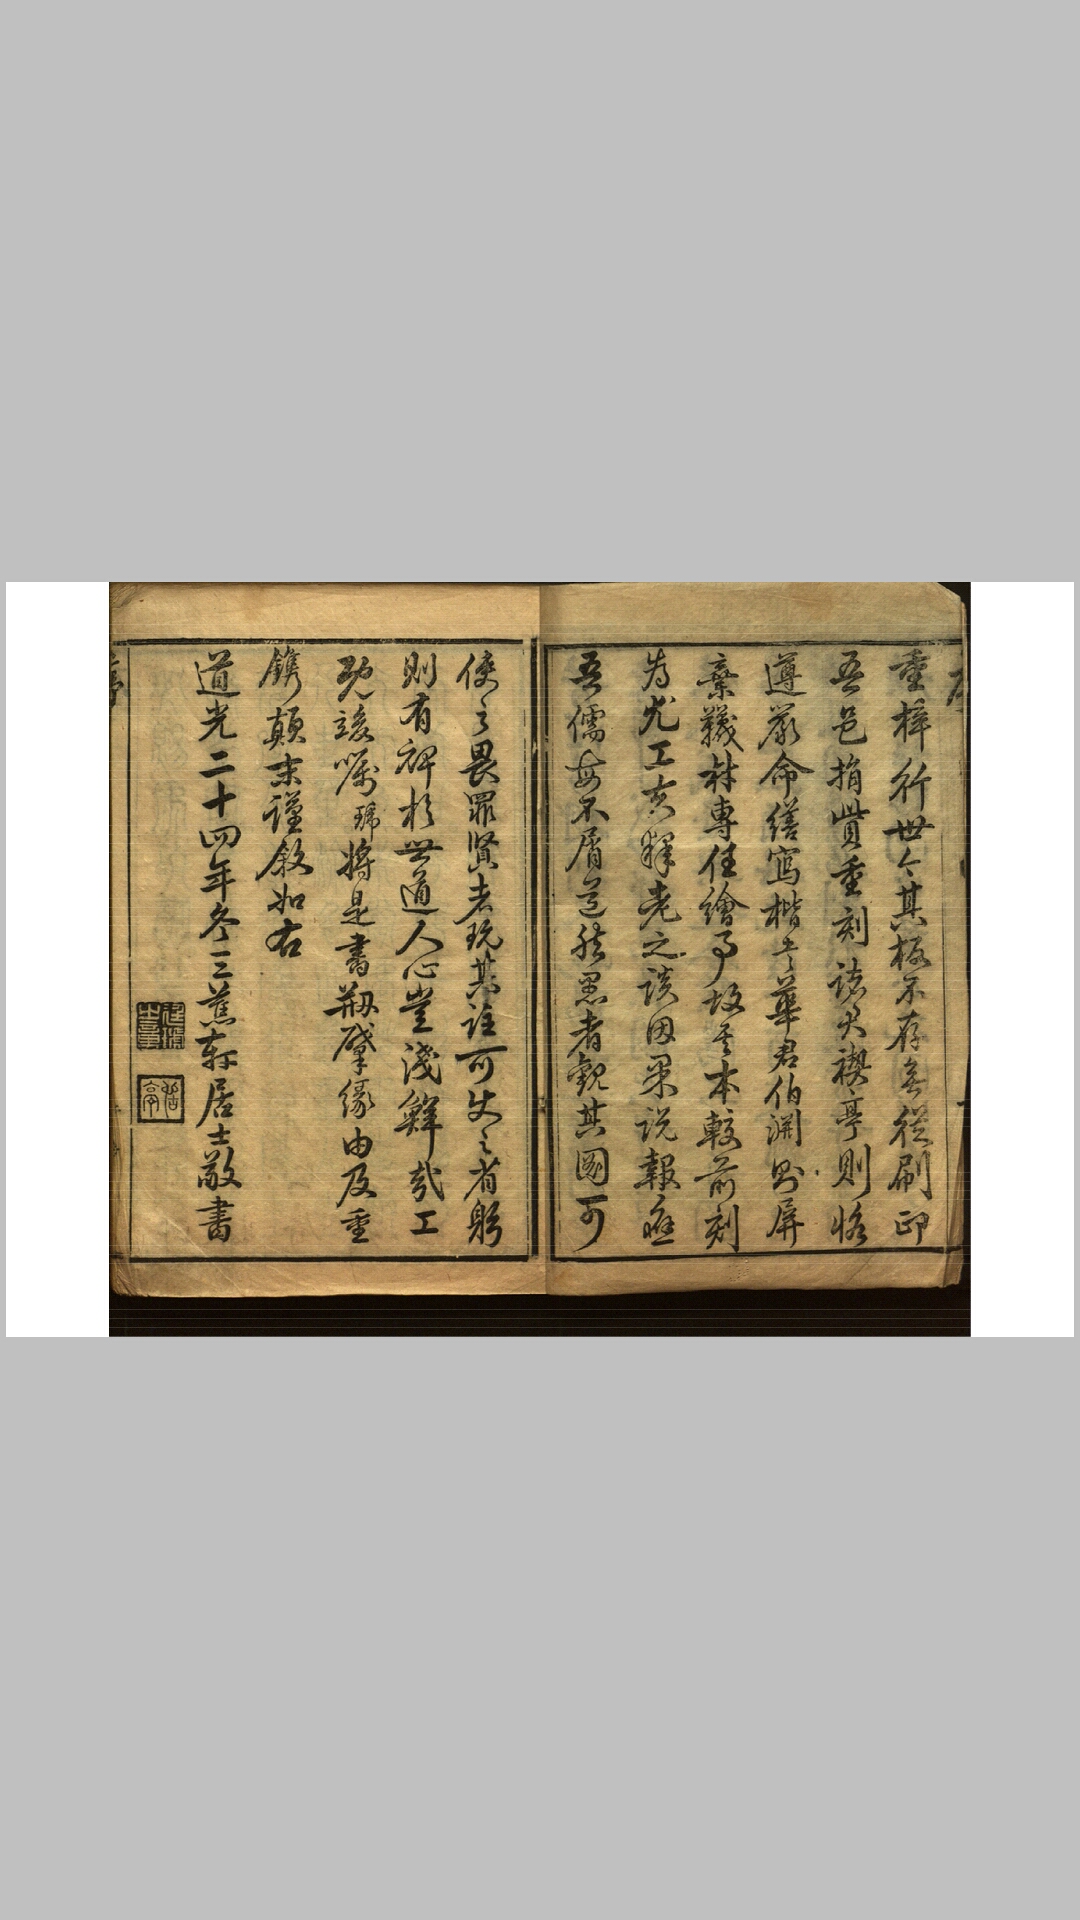 重梓行世今其板不存無從刷印
吾邑捐貲重刻諸君禊亭則恪
遵嚴命繕寫楷書華君伯淵則屏
棄襪材專任繪事故其本較前刻
為尤工夫釋老之談因果說報應
吾儒每不屑道然愚者觀其圖可
使之畏罪賢者玩其註可使之省躬
則有裨於世道人心豈淺鮮哉工
既竣囑 將是書刱肇緣由及重
鐫顛末謹敘如右
道光二十四年冬三蕉軒居士敬書